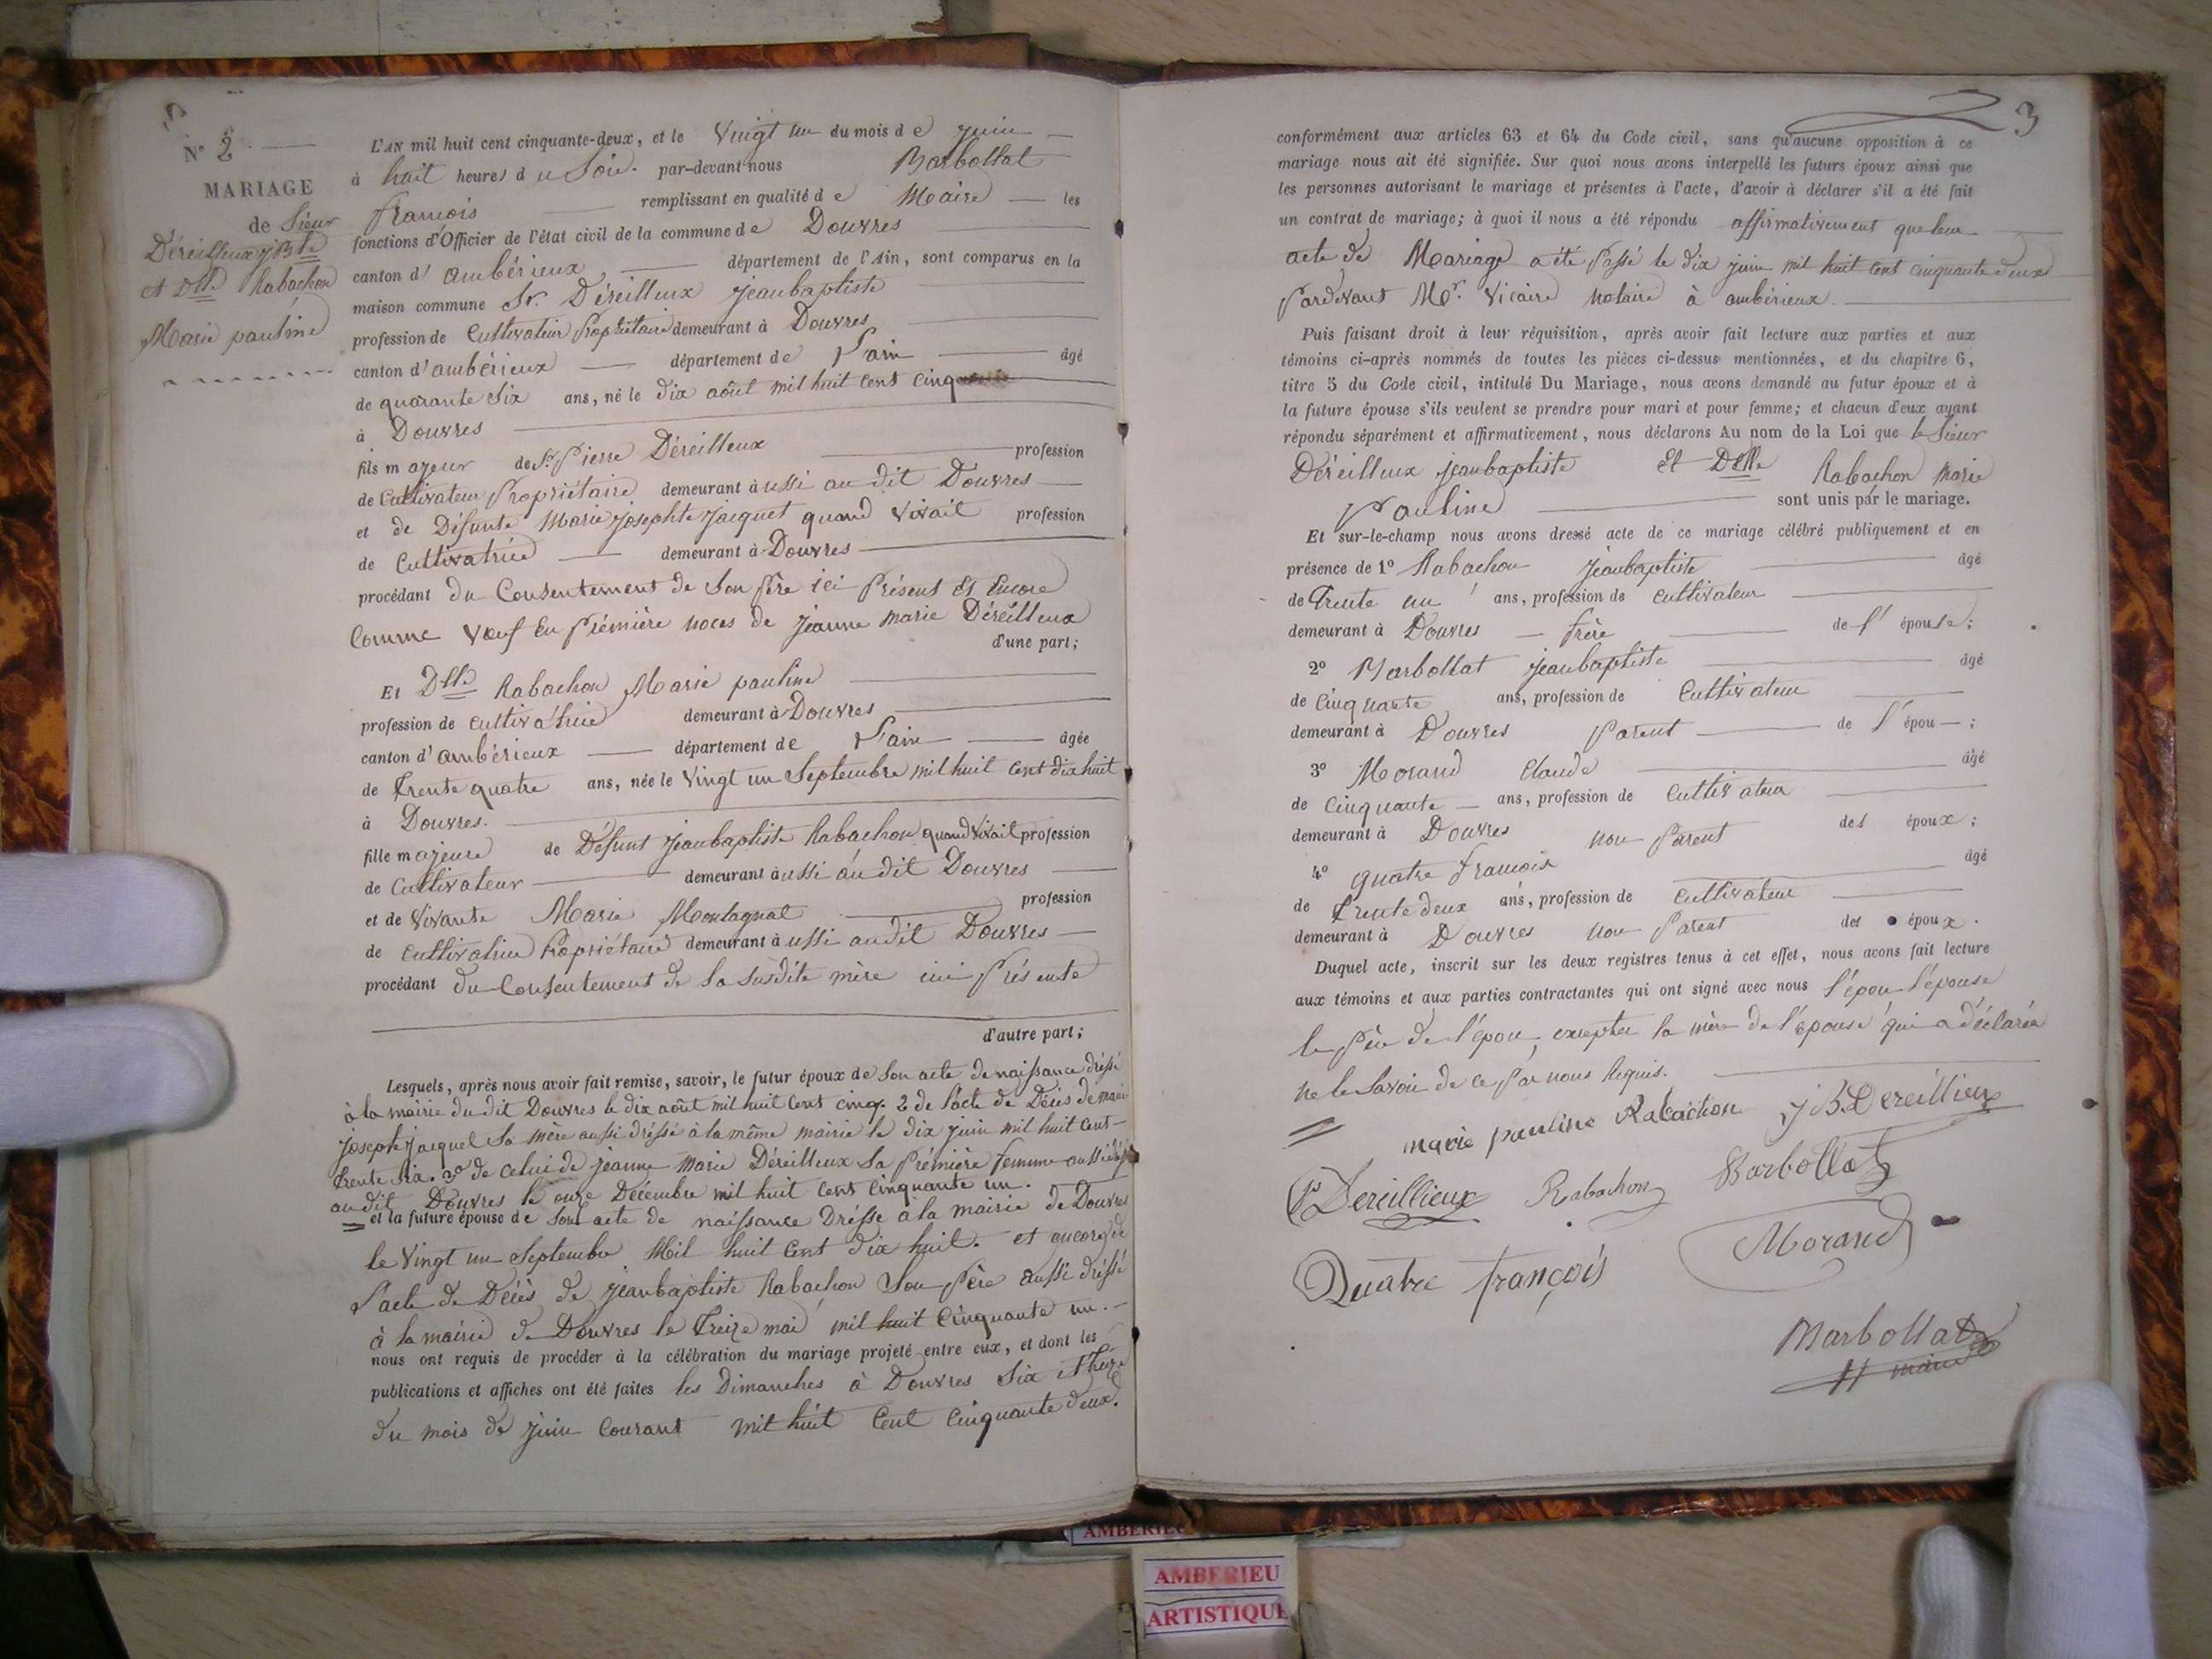 N° 2.
MARIAGE
de Sieur
Déreilleux J Bte
et Dlle Rabachon
Marie pauline
L'AN mil huit cent cinquante-deux, et le Vingt un du mois de Juin
à huit heures du Soir. par-devant nous Barbollat
francois remplissant en qualité de Maire les
fonctions d'Officier de l'état civil de la commune de Douvres
canton d'ambérieux département de l'Ain, sont comparus en la
maison commune Sr. Déreilleux Jeanbaptiste
profession de Cultivateur Propriétaire demeurant à Douvres
canton d'ambérieux département de l'ain âgé
de quarante Six ans, né le dix aôut mil huit Cent Cinq
à Douvres
fils majeur de Sr. Pierre Déreilleux profession
de Cultivateur Propriétaire demeurant à ussi au dit Douvres
et de Défunte Marie Josephte Jacquet quand Vivait profession
de Cultivatrice demeurant à Douvres
procédant du Consentement de Son Père ici Présent Et Encore
Comme Veuf En Prémière noces de Jeanne marie Déreilleux
d'une part;
Et Dlle Rabachon Marie pauline
profession de cultivatrice demeurant à Douvres
canton d'ambérieux département de l'ain âgée
de Trente quatre ans, née le Vingt un Septembre mil huit Cent dix huit
à Douvres.
fille majeure de Défunt Jeanbaptiste Rabachon quand Vivait profession
de Cultivateur demeurant à ussi au dit Douvres
et de Vivante Marie Montagnat profession
de cultivatrice Propriétaire demeurant à ussi au dit Douvres
procédant du Consentement de Sa Susdite mère ici Présente
d'autre part;
Lesquels, après nous avoir fait remise, savoir, le futur époux de Son acte de naissance dréssé
à la mairie du dit Douvres le dix aôut mil huit Cent cinq. 2 de l'acte de Décès de marie
Josephte Jacquet Sa mère aussi dréssé à la même mairie le dix Juin mil huit Cent
trente Six. 3° de celui de Jeanne Marie Déreilleux Sa Prémière femme aussi
au dit Douvres le onze Décembre mil huit Cent Cinquante un.
et la future épouse de Son acte de naissance Dréssé à la mairie de Douvres
le Vingt un Septembre Mil huit Cent dix huit. et encore de
l'acte de Décès de Jeanbaptiste Rabachon Son Père aussi dréssé
à la mairie de Douvres le Treize mai mil huit Cinquante un.
nous ont requis de procéder à la célébration du mariage projeté entre eux, et dont les
publications et affiches ont été faites les Dimanches à Douvres Six et treize
du mois de Juin Courant mil huit Cent Cinquante deux.
3
conformément aux articles 63 et 64 du Code civil, sans qu'aucune opposition à ce
mariage nous ait été signifiée. Sur quoi nous avons interpellé les futurs époux ainsi que
les personnes autorisant le mariage et présentes à l'acte, d'avoir à déclarer s'il a été fait
un contrat de mariage; à quoi il nous a été répondu affirmativement que leur
acte de Mariage a été Passé le dix juin mil huit Cent cinquante deux
Pardevant Mr. Vicaire Notaire à ambérieux.
Puis faisant droit à leur réquisition, après avoir fait lecture aux parties et aux
témoins ci-après nommés de toutes les pièces ci-dessus mentionnées, et du chapitre 6,
titre 5 du Code civil, intitulé Du Mariage, nous avons demandé au futur époux et à
la future épouse s'ils veulent se prendre pour mari et pour femme; et chacun d'eux ayant
répondu séparément et affirmativement, nous déclarons Au nom de la Loi que le Sieur
Déreilleux jeanbaptiste Et Dlle Rabachon Marie
Pauline sont unis par le mariage.
Et sur-le-champ nous avons dressé acte de ce mariage célébré publiquement et en
présence de 1° Rabachon Jeanbaptiste âgé
de Trente un ans, profession de cultivateur
demeurant à Douvres frère de l'épouse;
2° Barbollat Jeanbaptiste âgé
de Cinquante ans, profession de Cultivateur
demeurant à Douvres Parent de l'épou ;
3° Morand Claude âgé
de Cinquante ans, profession de Cultivateur
demeurant à Douvres non Parent des époux;
4° quatre francois âgé
de Trente deux ans, profession de cultivateur
demeurant à Douvres non Parent des époux.
Duquel acte, inscrit sur les deux registres tenus à cet effet, nous avons fait lecture
aux témoins et aux parties contractantes qui ont signé avec nous l'épou l'épouse
le Père de l'épou, exceptée la mère de l'épouse qui a déclarée
ne le Savoir de ce Par nous Requis.
marie pauline Rabachon J B Dereillieux
P Dereillieux Rabachon Barbollat
Quatre françois Morand
Barbollat
maire
AMBERIEU
AMBERIEU
ARTISTIQUE